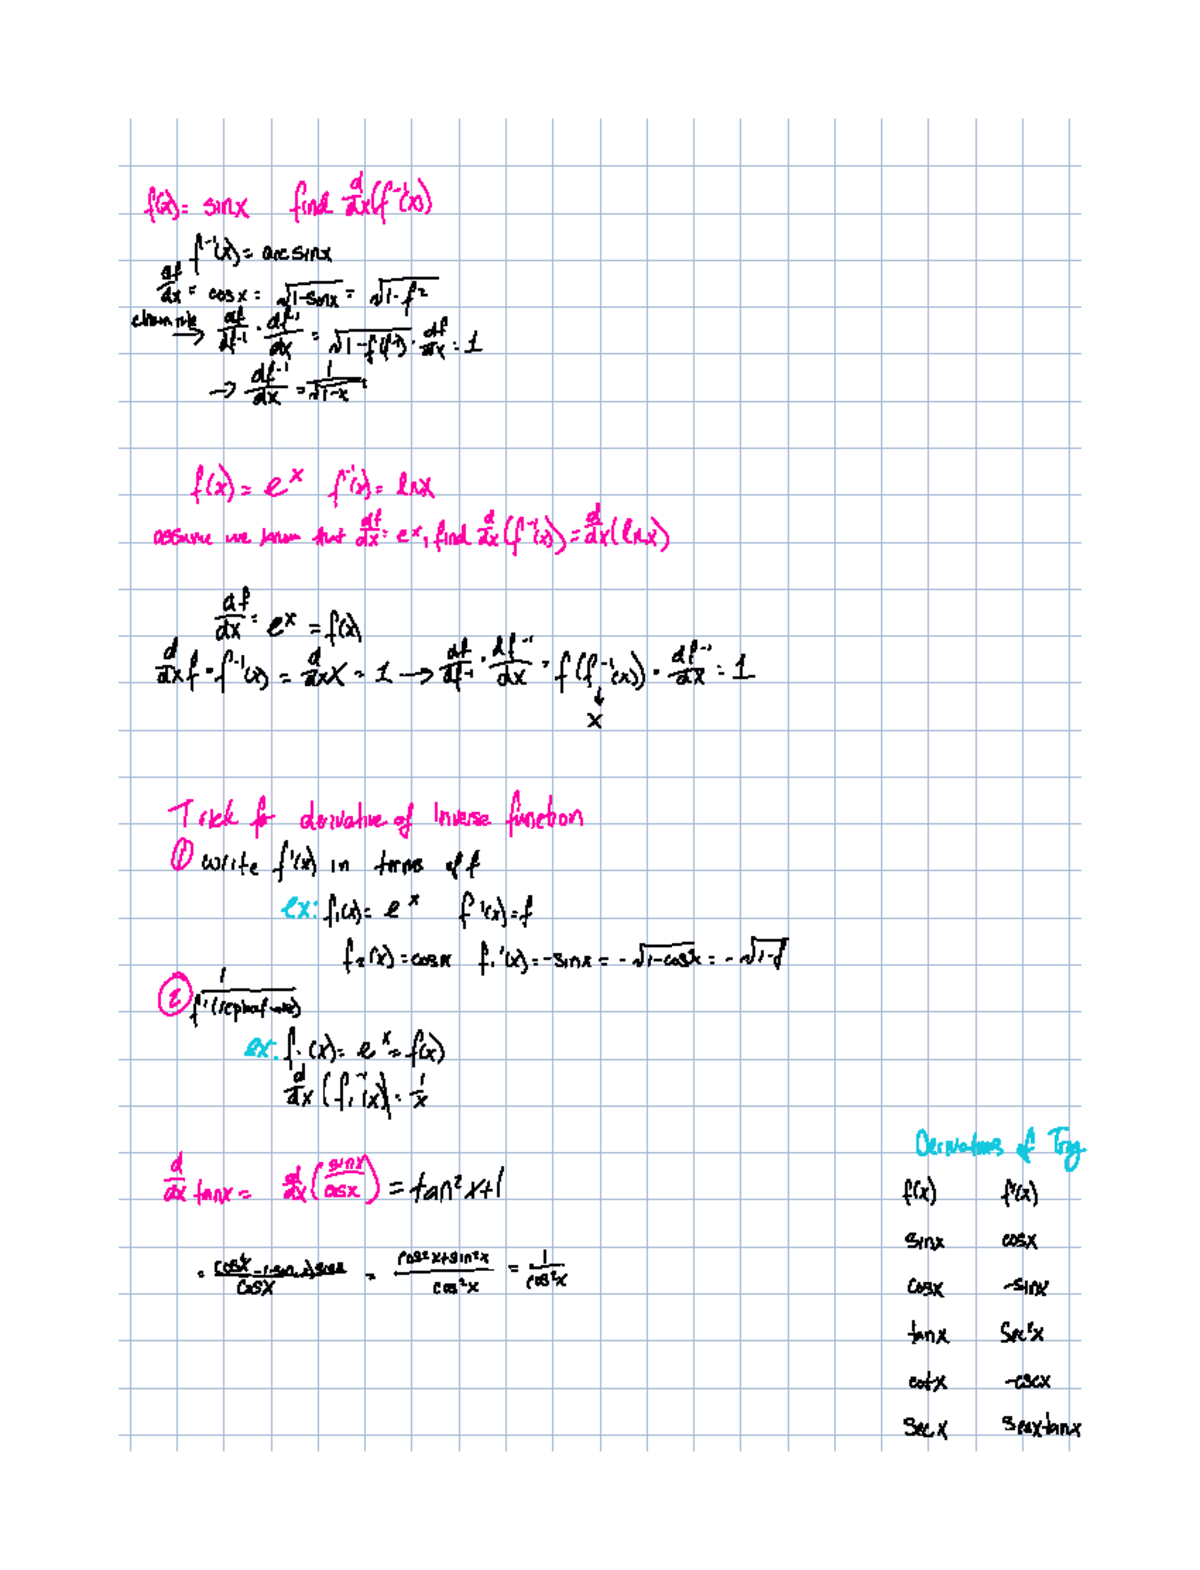 f(x) = sinx find d/dx(f⁻¹(x))
f⁻¹(x) = arcsinx
df/dx = cosx = √1-sinx = √1-f²
chain rule → df/df⁻¹ · df⁻¹/dx = √1-f(f⁻¹) · df/dx = 1
→ df⁻¹/dx = 1/√1-x
f(x) = eˣ f⁻¹(x) = lnx
assume we know that df/dx = eˣ, find d/dx(f⁻¹(x)) = d/dx(lnx)
df/dx = eˣ = f(x)
d/dx f · f⁻¹(x) = d/dx x = 1 → df/df⁻¹ · df⁻¹/dx = f(f⁻¹(x)) · df⁻¹/dx = 1
↓
x
Trick for derivative of Inverse function
① write f'(x) in terms of f
ex: f₁(x) = eˣ f'(x) = f
f₂(x) = cosx f₁'(x) = -sinx = -√1-cos²x = -√1-f
② 1/f'
ex: f₁(x) = eˣ = f(x)
d/dx (f₁⁻¹(x)) = 1/x
d/dx tanx = d/dx (sinx/cosx) = tan²x+1
= cos²x+sin²x/cos²x = 1/cos²x
Derivatives of Trig
f(x) f'(x)
sinx cosx
cosx -sinx
tanx sec²x
cotx -cscx
secx secxtanx